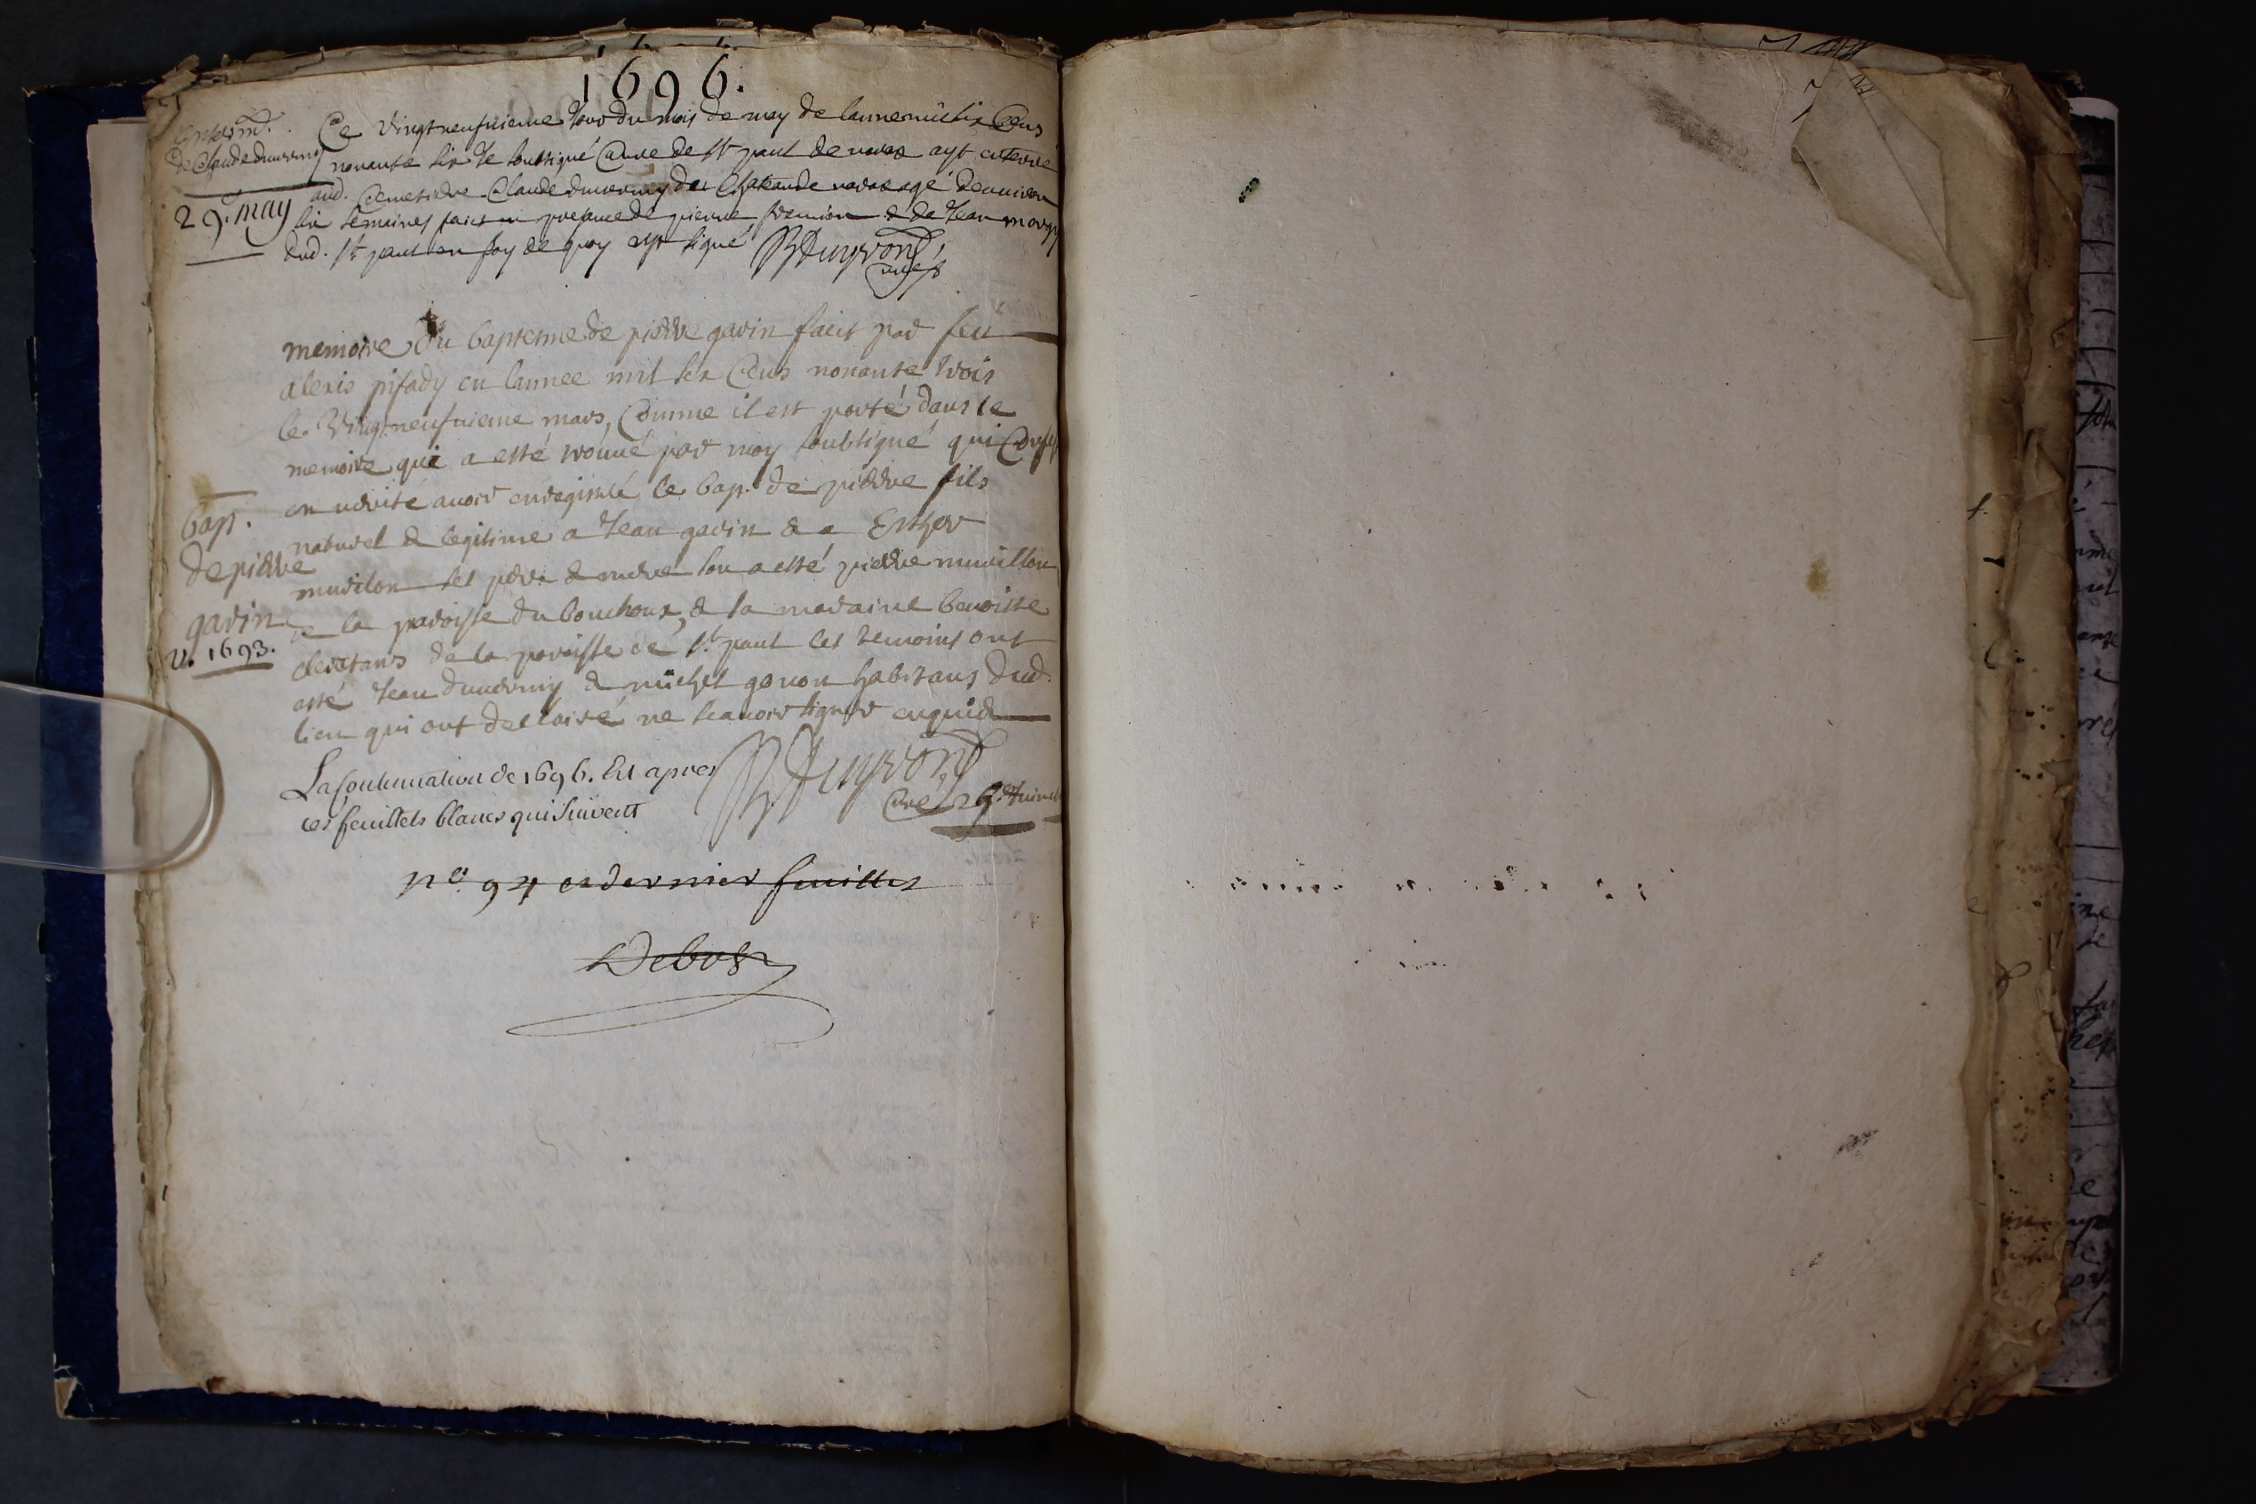 1696.
Enterm.t
de Claude duverny
29. may
Ce vingtneufuieme Jour du mois de may de lanne mil six Cens
nonante six Je soubsigné Curé de st paul de varax ayt enterré
aud. Cemetiere Claude duverny du Chateau de varax agé denuiron
six semaines faict en presence de pierre & de Jean
dud. st paul en foy de quoy ayt signé
curé
memoire du baptesme de pierre gavin faict par feu
alexis pifady en lannee mil six Cens nonante trois
le Vingtneufuieme mars, Comme il est porté dans le
memoire qui a esté trouué par moy soubsigné qui
en verité auoir enregistré le bap. de pierre fils
naturel & legitime a Jean gavin & a Esther
murilon ses pere & mere son a esté pierre murillon
de la paroisse du bouchoux, & la maraine benoiste
de la paroisse de st paul les temoins ont
esté Jean duverny & michel gonon habitans dud.
lieu qui ont declairé ne scauoir signer enquis
bap.
de pierre
gavin
v. 1693.
La Continuation de 1696. Est apres
ces feuillets blancs qui Suivent
Curé 29.
no. 94 et dernier feuillet
Debost